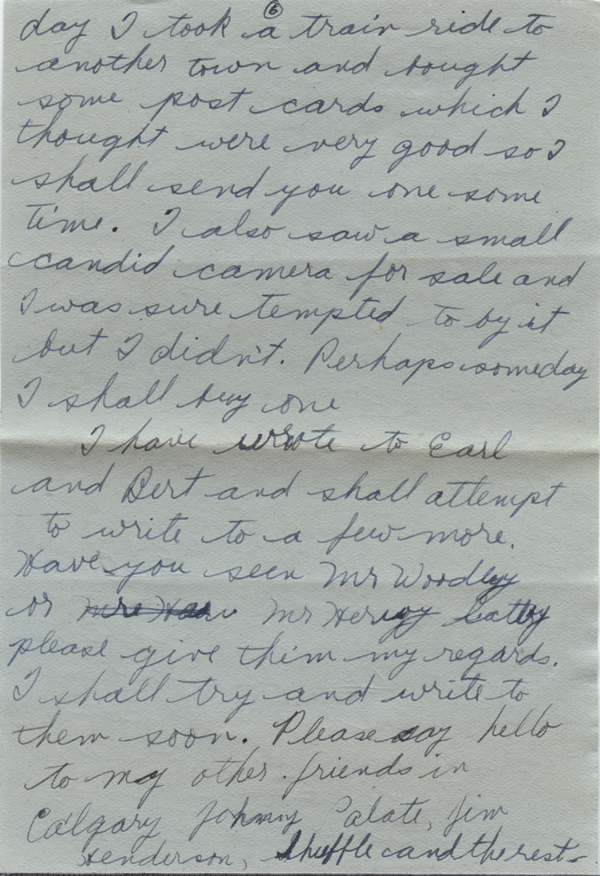 6
day I took a train ride to
another town and bought
some post cards which I
thought were very good so I
shall send you one some
time. I also saw a small
candid camera for sale and
I was sure tempted to by it
but I didn't. Perhaps someday
I shall buy one
I have wrote to Earl
and Bert and shall attempt
to write to a few more.
Have you seen Mr Woodley
or Mr Hervey
please give them my regards.
I shall try and write to
them soon. Please say hello
to my other friends in
Calgary Johnny Palate, Jim
Henderson, and the rest